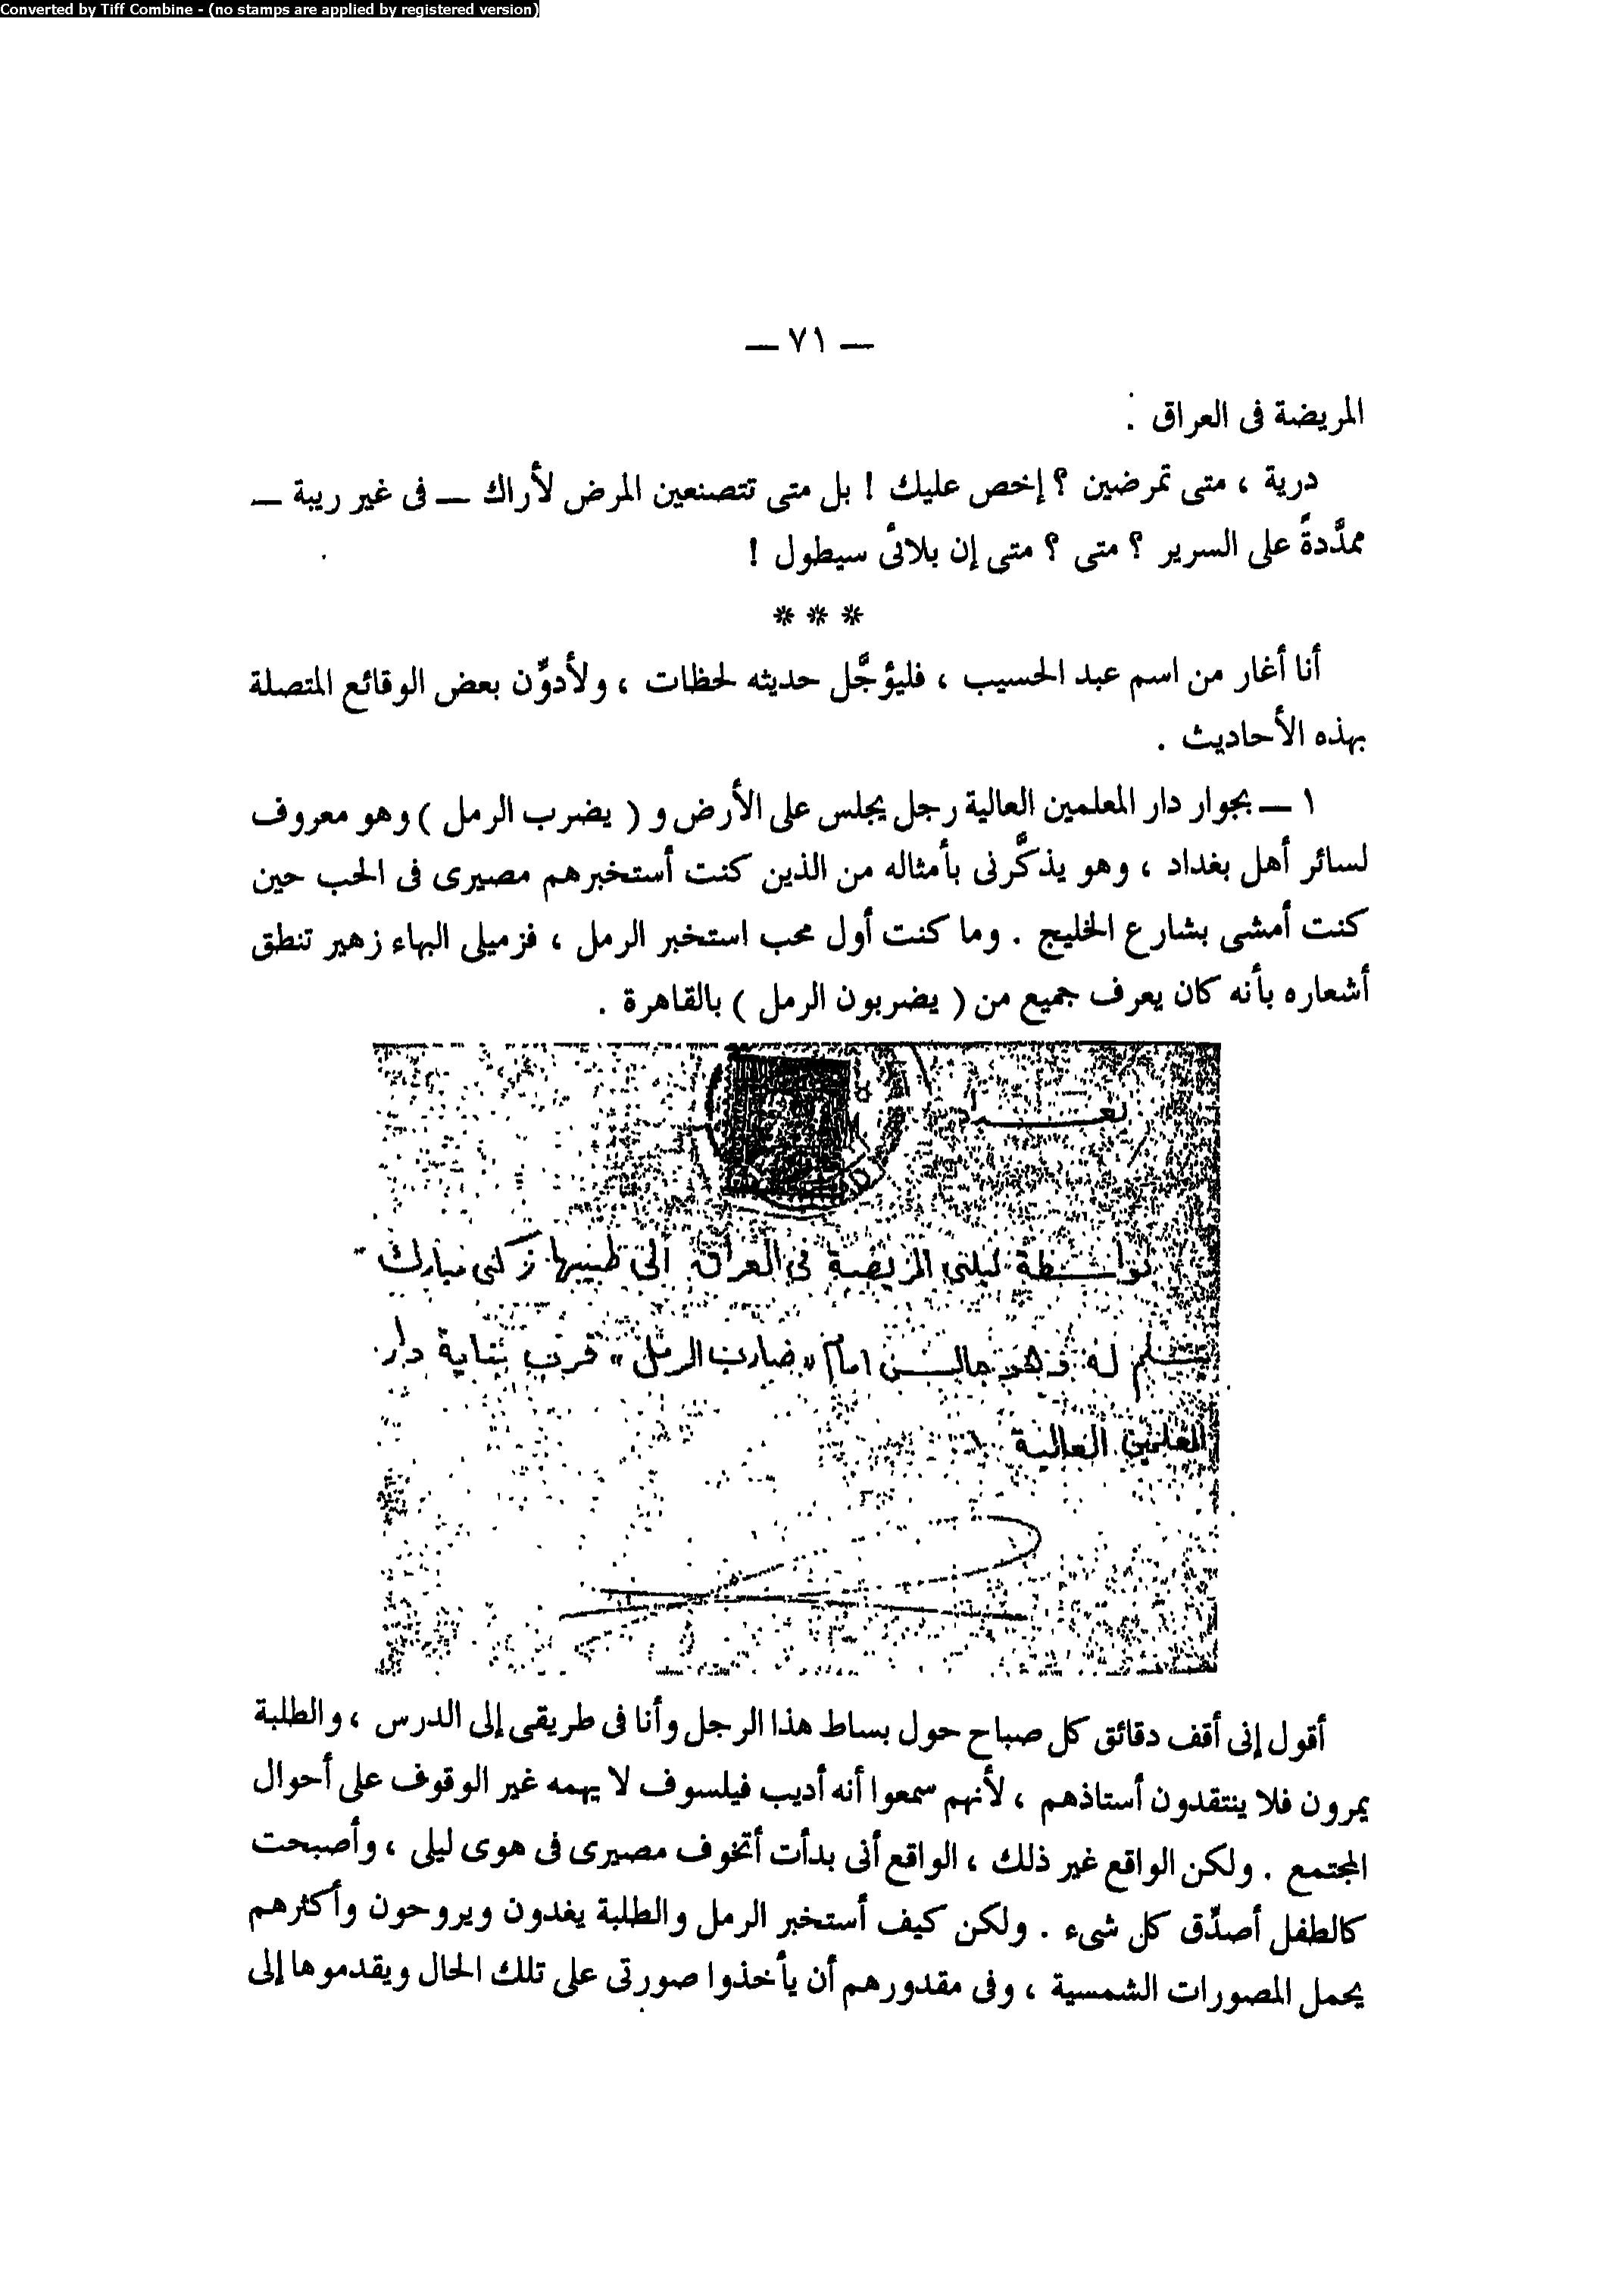 Converted by Tiff Combine - (no stamps are applied by registered version)
— ٧١ —
المريضة فى العراق .
درية ، متى تمرضين ؟ إخص عليك ! بل متى تتصنعين المرض لأراك — فى غير ريبة —
ممدَّدةً على السرير ؟ متى ؟ متى إن بلائى سيطول !
* * *
أنا أغار من اسم عبد الحسيب ، فليؤجَّل حديثه لحظات ، ولأدوِّن بعض الوقائع المتصلة
بهذه الأحاديث .
١ — بجوار دار المعلمين العالية رجل يجلس على الأرض و ( يضرب الرمل ) وهو معروف
لسائر أهل بغداد ، وهو يذكِّرنى بأمثاله من الذين كنت أستخبرهم مصيرى فى الحب حين
كنت أمشى بشارع الخليج . وما كنت أول محب استخبر الرمل ، فزميلى البهاء زهير تنطق
أشعاره بأنه كان يعرف جميع من ( يضربون الرمل ) بالقاهرة .
بغداد
بواسطة ليلى المريضة فى العراق الى طبيبها زكى مبارك
يسلم له وهو جالس امام « ضارب الرمل » قرب بناية دار
المعلمين العالية
أقول إنى أقف دقائق كل صباح حول بساط هذا الرجل وأنا فى طريقى إلى الدرس ، والطلبة
يمرون فلا ينتقدون أستاذهم ، لأنهم سمعوا أنه أديب فيلسوف لا يهمه غير الوقوف على أحوال
المجتمع . ولكن الواقع غير ذلك ، الواقع أنى بدأت أتخوف مصيرى فى هوى ليلى ، وأصبحت
كالطفل أصدِّق كل شىء . ولكن كيف أستخبر الرمل والطلبة يغدون ويروحون وأكثرهم
يحمل المصورات الشمسية ، وفى مقدورهم أن يأخذوا صورتى على تلك الحال ويقدموها إلى